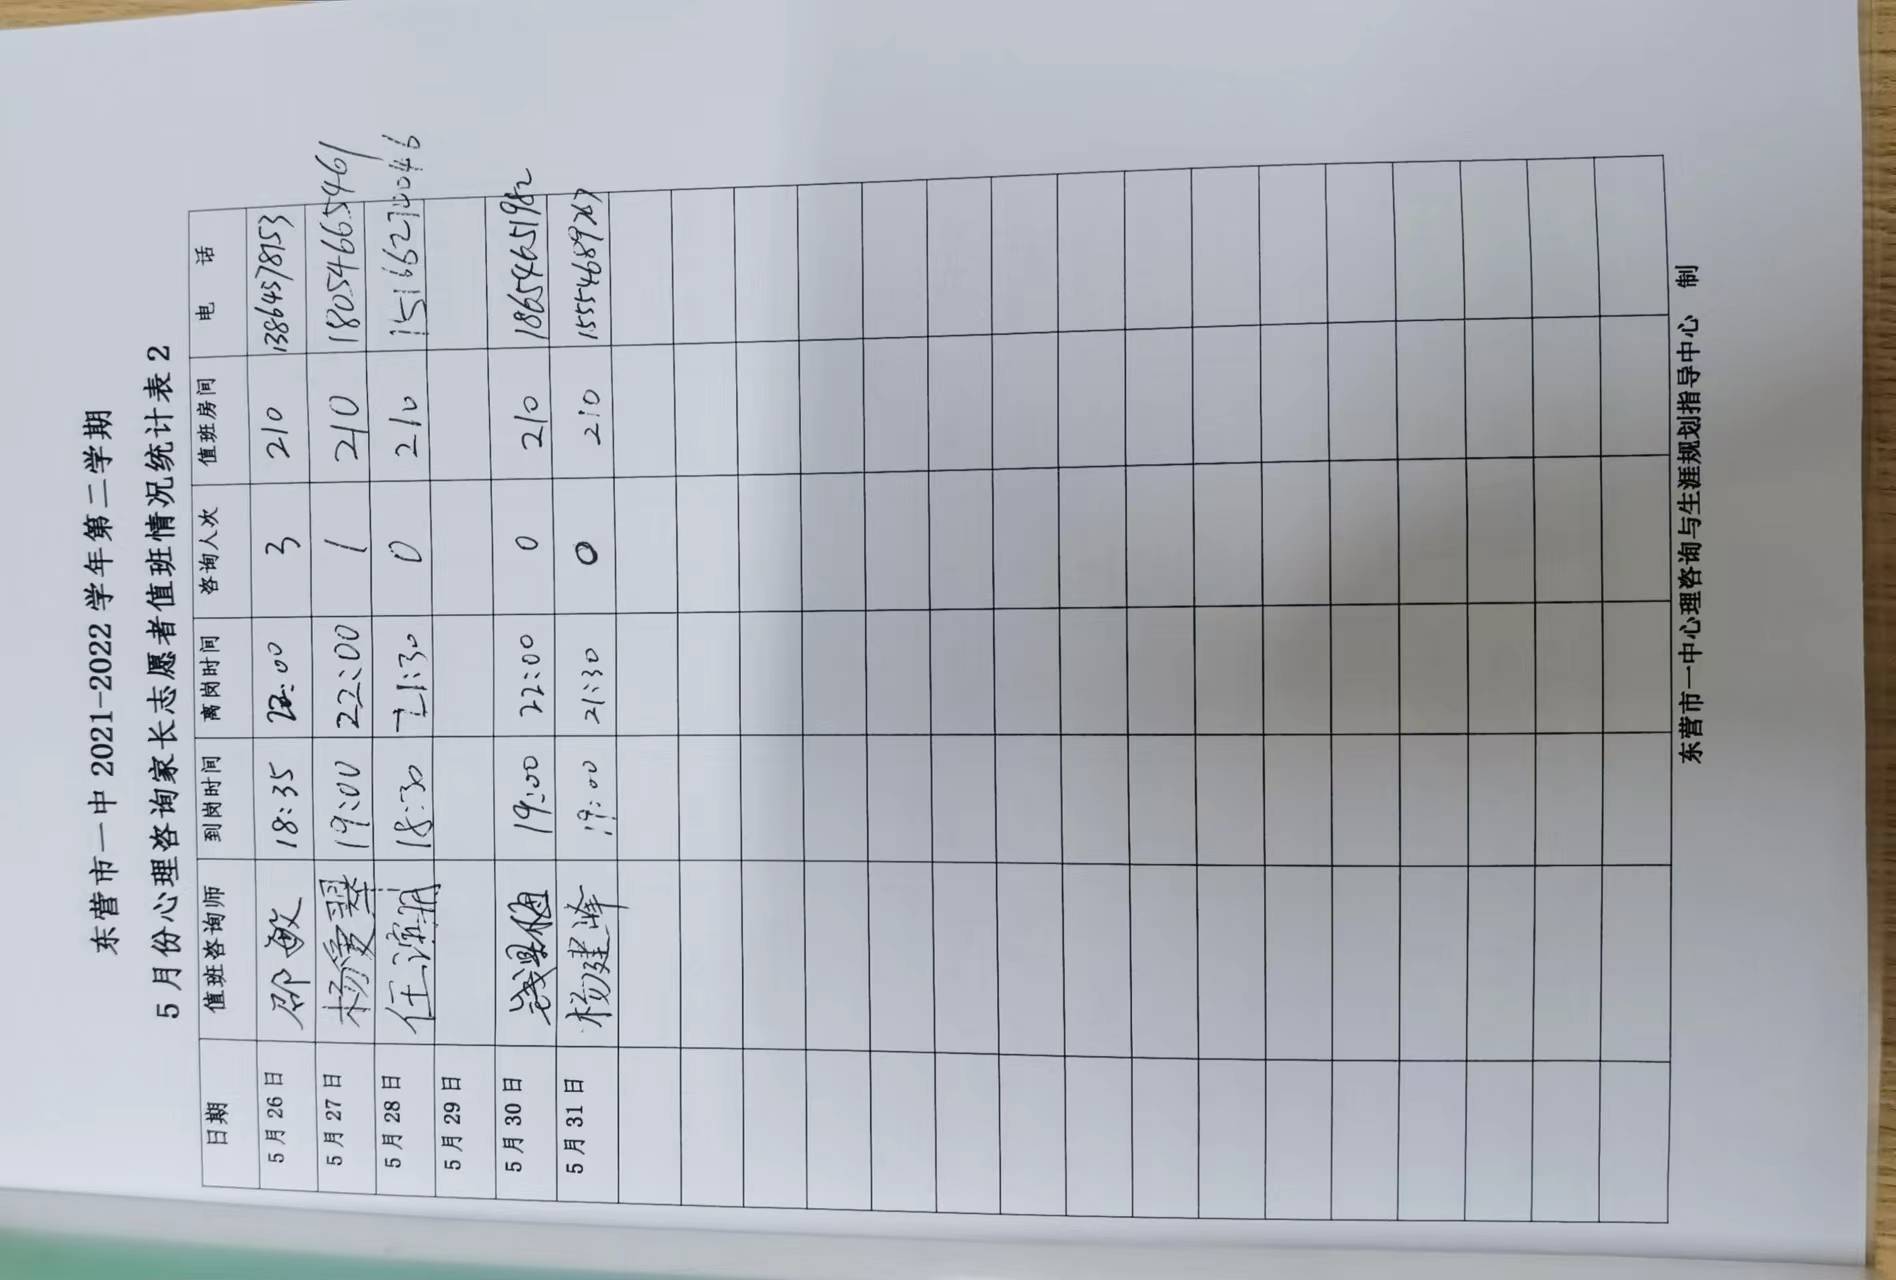 东营市一中 2021-2022 学年第二学期
5 月份心理咨询家长志愿者值班情况统计表 2
日期 值班咨询师 到岗时间 离岗时间 咨询人次 值班房间 电 话
5 月 26 日 邵敏 18:35 22:00 3 210 13864578153
5 月 27 日 杨爱翠 19:00 22:00 1 210 18054665461
5 月 28 日 任滨 18:30 21:30 0 210 15166270046
5 月 29 日
5 月 30 日 19:00 22:00 0 210 18654651982
5 月 31 日 杨建峰 19:00 21:30 0 210 15554689767
东营市一中心理咨询与生涯规划指导中心 制